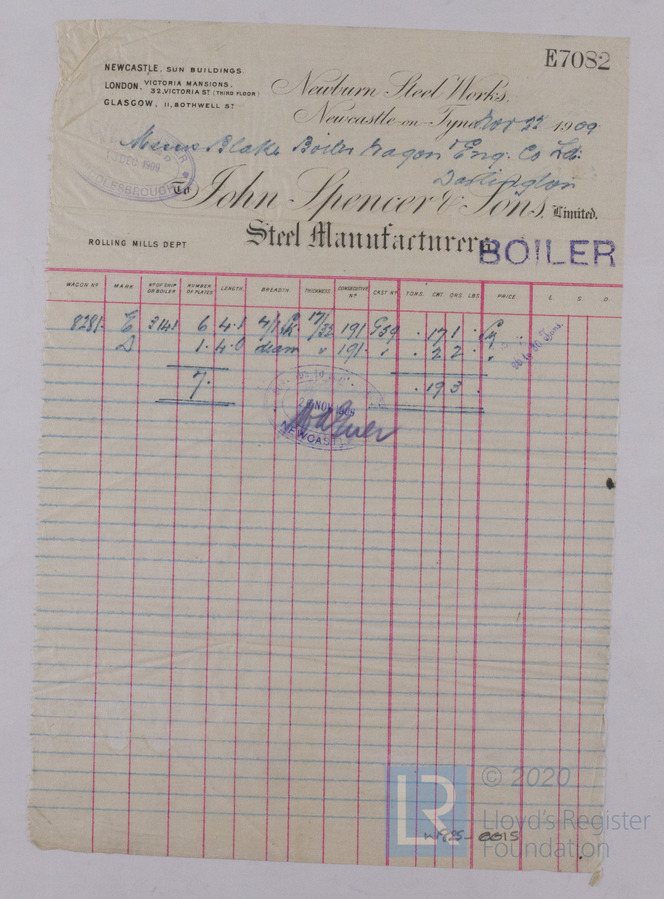 E7082
NEWCASTLE, SUN BUILDINGS.
LONDON, VICTORIA MANSIONS, 32, VICTORIA ST (THIRD FLOOR)
GLASGOW, 11, BOTHWELL ST
Newburn Steel Works,
Newcastle-on-Tyne Nov 23 1909
Messrs Blake Boiler Wagon & Eng. Co Ld.
Darlington
DEC 1909
MIDDLESBROUGH
To John Spencer & Sons, Limited.
Steel Manufacturers
BOILER
ROLLING MILLS DEPT
WAGON No MARK No OF SHIP OR BOILER NUMBER OF PLATES LENGTH BREADTH THICKNESS CONSECUTIVE No CAST No TONS. CWT QRS LBS. PRICE £ S. D.
8281 E 3141 6 4.1 17/32 191 G59 . 17 1 .
1. 4.0 diam " 191. " . 2 2 .
7. . 19 3 .
NOV 1909
NEWCASTLE
LR
© 2020
Lloyd's Register
Foundation
W925-0015